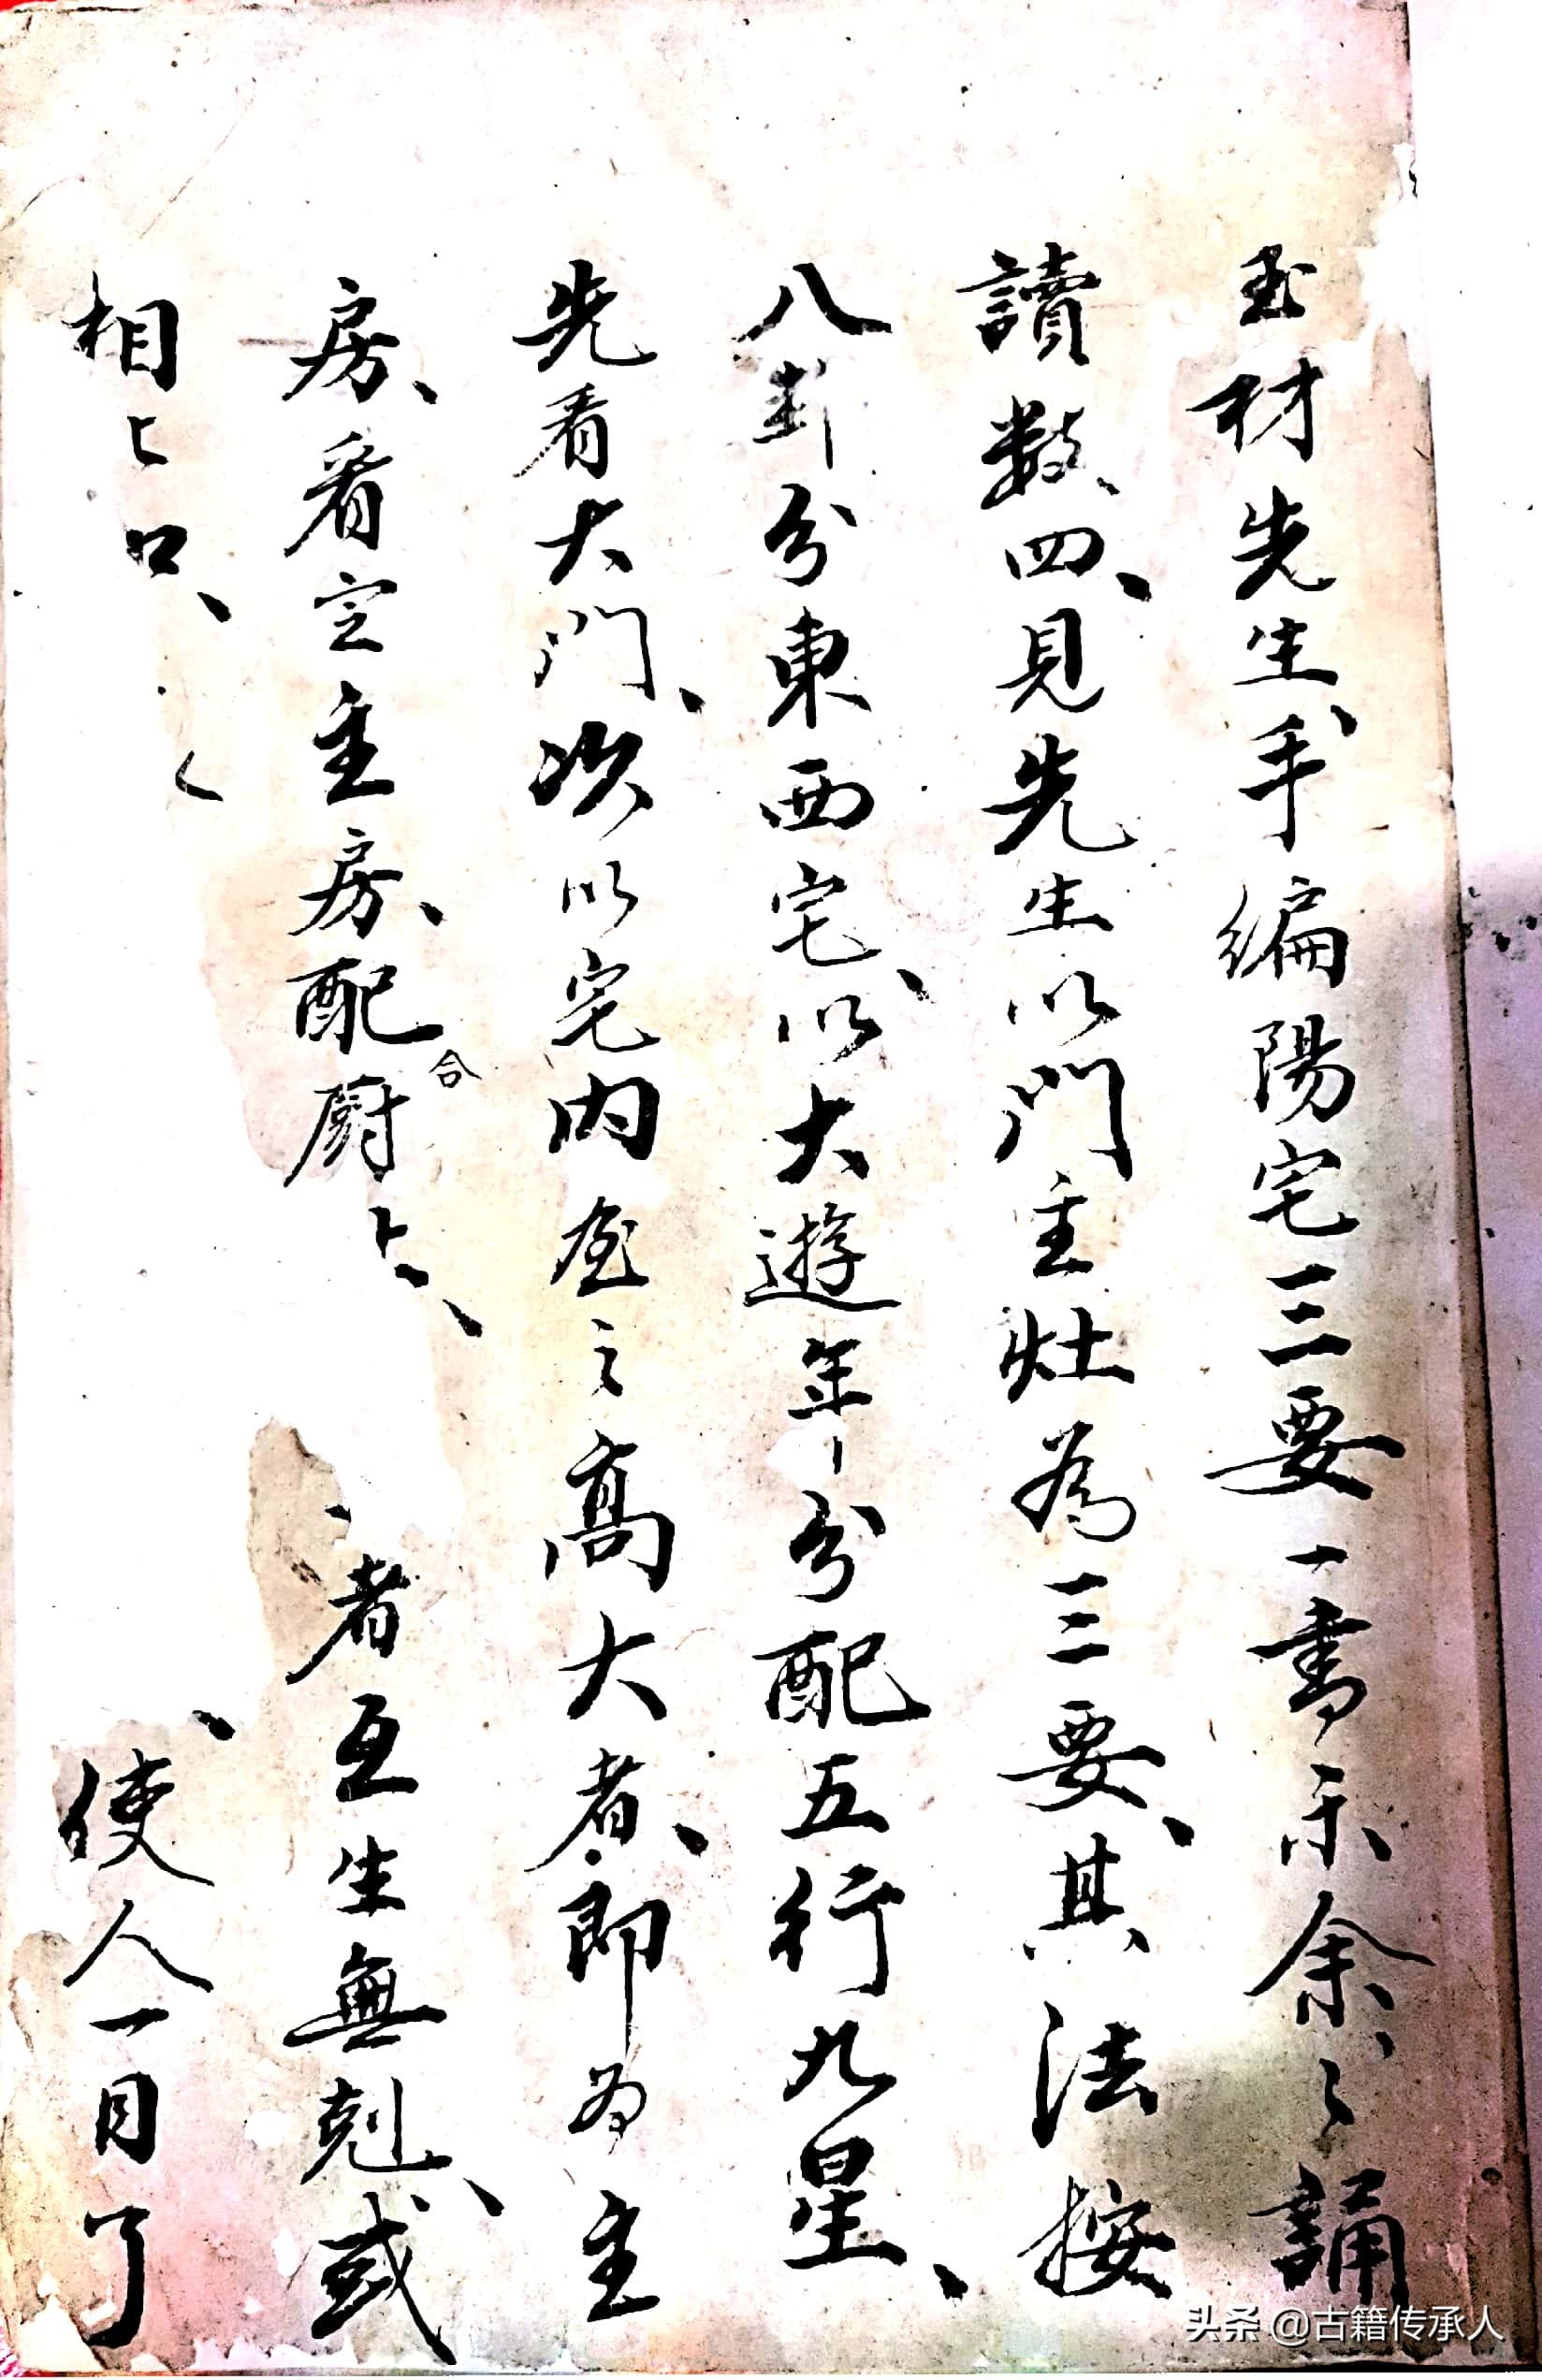 玉材先生、手編陽宅三要一書示余、余誦
讀数四、見先生以門主灶為三要、其法按
八卦分東西宅、以大遊年分配五行九星、
先看大門、次以宅内屋之高大者、即為主
房、看定主房、配合厨
者互生無剋、或
相
使人一目了
头条 @古籍传承人